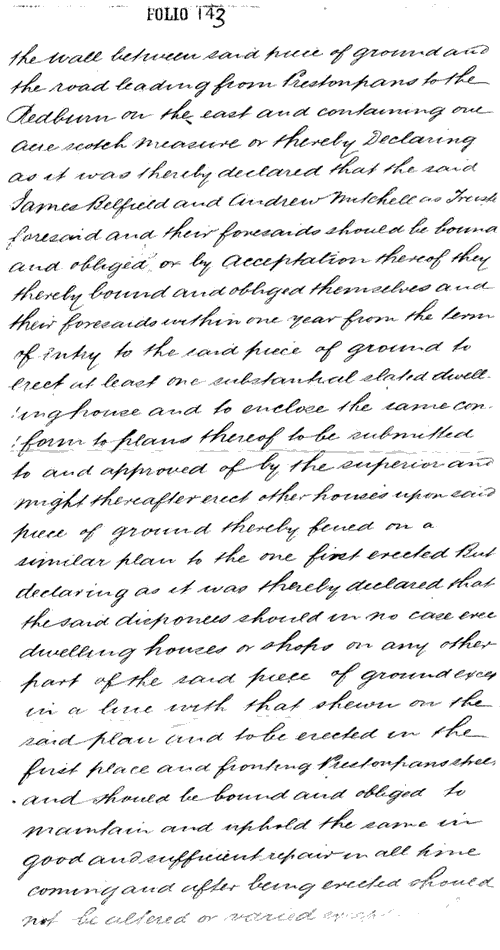 FOLIO 143
the wall between said piece of ground and
the road leading from Prestonpans to the
Redburn on the east and containing one
acre scotch measure or thereby Declaring
as it was thereby declared that the said
James Belfield and Andrew Mitchell as Trust
foresaid and their foresaids should be bound
and obliged or by acceptation thereof they
thereby bound and obliged themselves and
their foresaids within one year from the term
of entry to the said piece of ground to
erect at least one substantial slated dwell-
:ing house and to enclose the same con-
:form to plans thereof to be submitted
to and approved of by the superior and
might thereafter erect other houses upon said
piece of ground thereby feued on a
similar plan to the one first erected But
declaring as it was thereby declared that
the said disponees should in no case erec
dwelling houses or shops on any other
part of the said piece of ground excep
in a line with that shewn on the
said plan and to be erected in the
first place and fronting Prestonpans stree
and should be bound and obliged to
maintain and uphold the same in
good and sufficient repair in all time
coming and after being erected should
not be altered or varied except